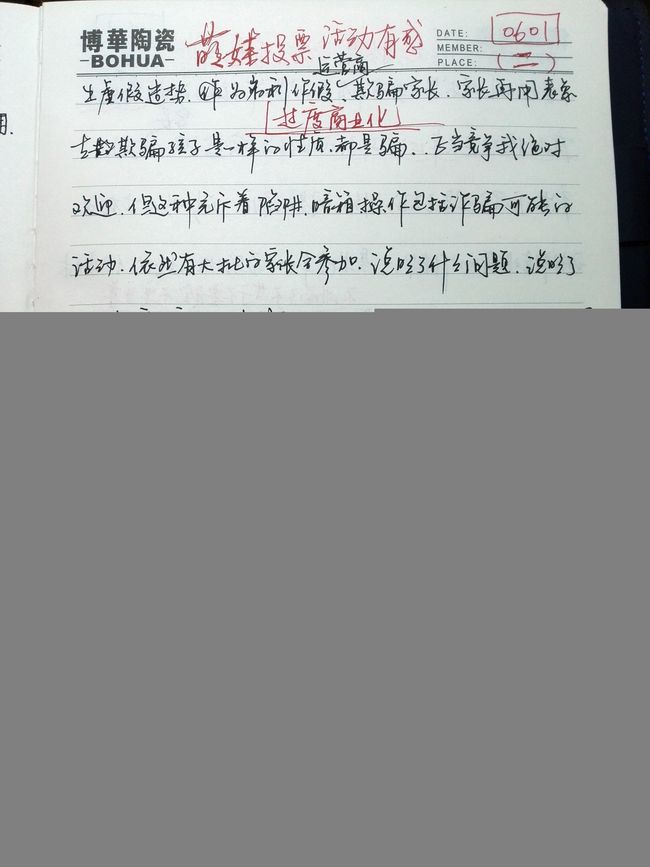 博華陶瓷
BOHUA
萌娃投票活动有感
DATE: 0601
MEMBER:
PLACE: (二)
运营商
生虚假造势. 为牟利作假、欺骗家长. 家长再用表象
过度商业化
去欺骗孩子是一样的性质. 都是骗. 正当竞争我绝对
欢迎. 但这种充斥着陷阱. 暗箱操作包括诈骗可能的
活动. 依然有大批的家长会参加. 说明了什么问题. 说明了
用.